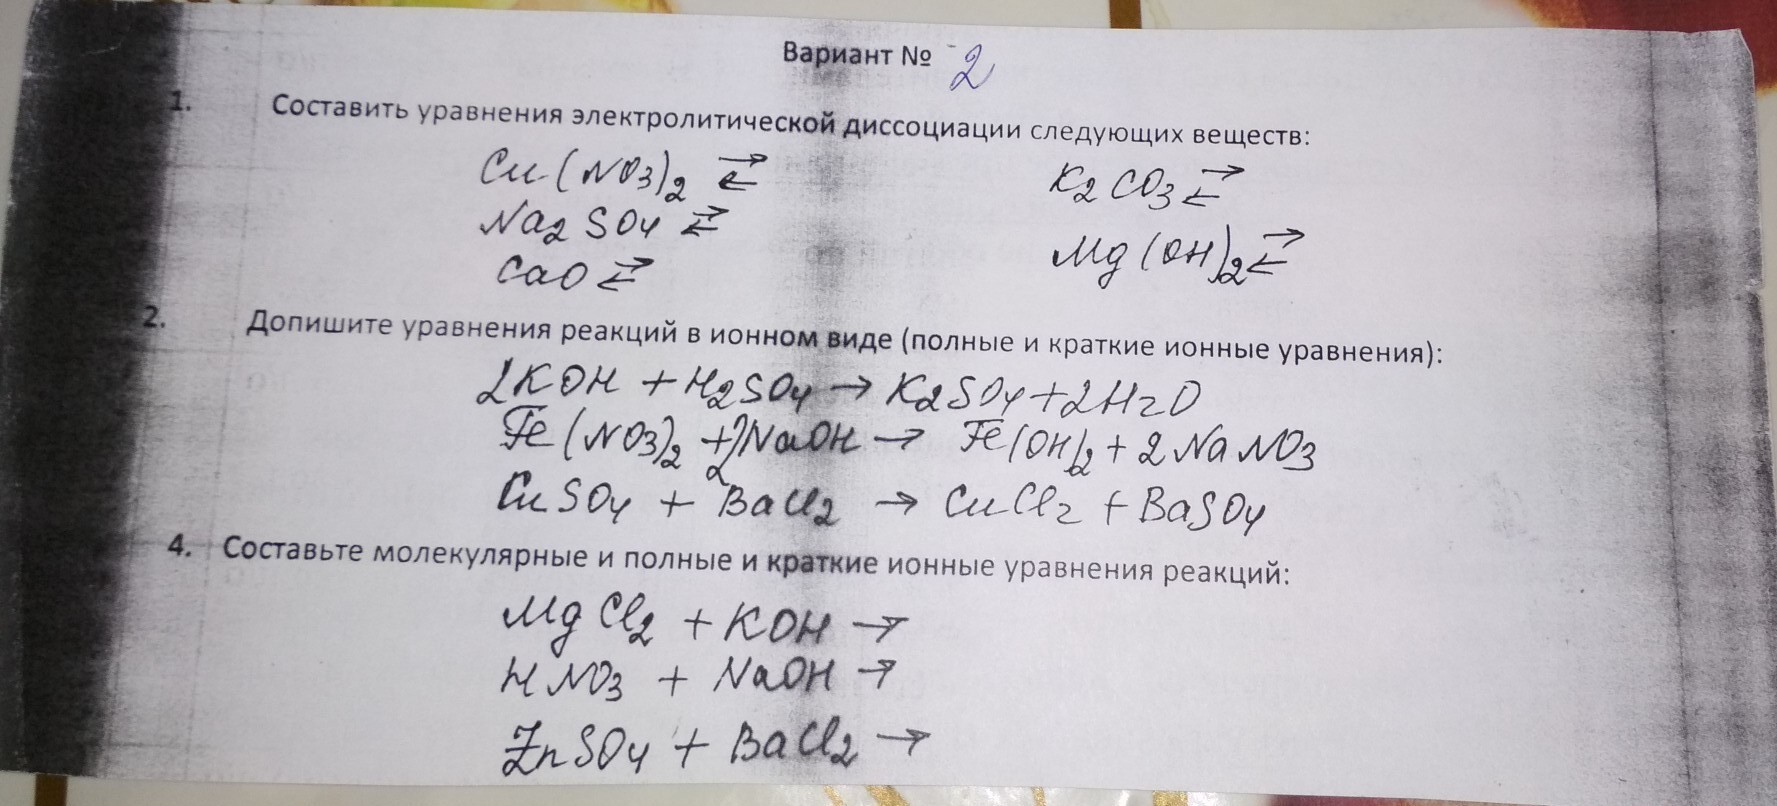 Вариант № 2
1. Составить уравнения электролитической диссоциации следующих веществ:
Cu(NO3)2 ⇄ K2CO3 ⇄
Na2SO4 ⇄ Mg(OH)2 ⇄
CaO ⇄
2. Допишите уравнения реакций в ионном виде (полные и краткие ионные уравнения):
2KOH + H2SO4 → K2SO4 + 2H2O
Fe(NO3)2 + 2NaOH → Fe(OH)2 + 2NaNO3
CuSO4 + BaCl2 → CuCl2 + BaSO4
4. Составьте молекулярные и полные и краткие ионные уравнения реакций:
MgCl2 + KOH →
HNO3 + NaOH →
ZnSO4 + BaCl2 →